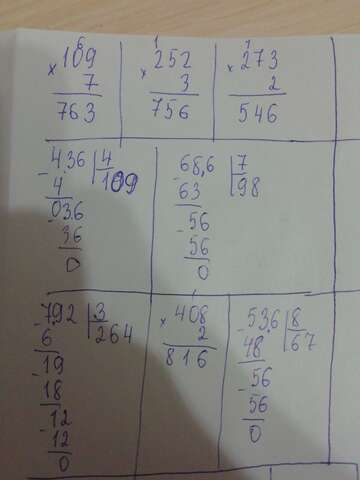 6 1 1
109 252 273
× 7 × 3 × 2
763 756 546
- 436 | 4 - 686 | 7
4 109 63 98
036 - 56
- 36 56
0 0
- 792 | 3 1 - 536 | 8
6 264 × 408 48 67
- 19 2 - 56
18 816 56
- 12 0
12
0